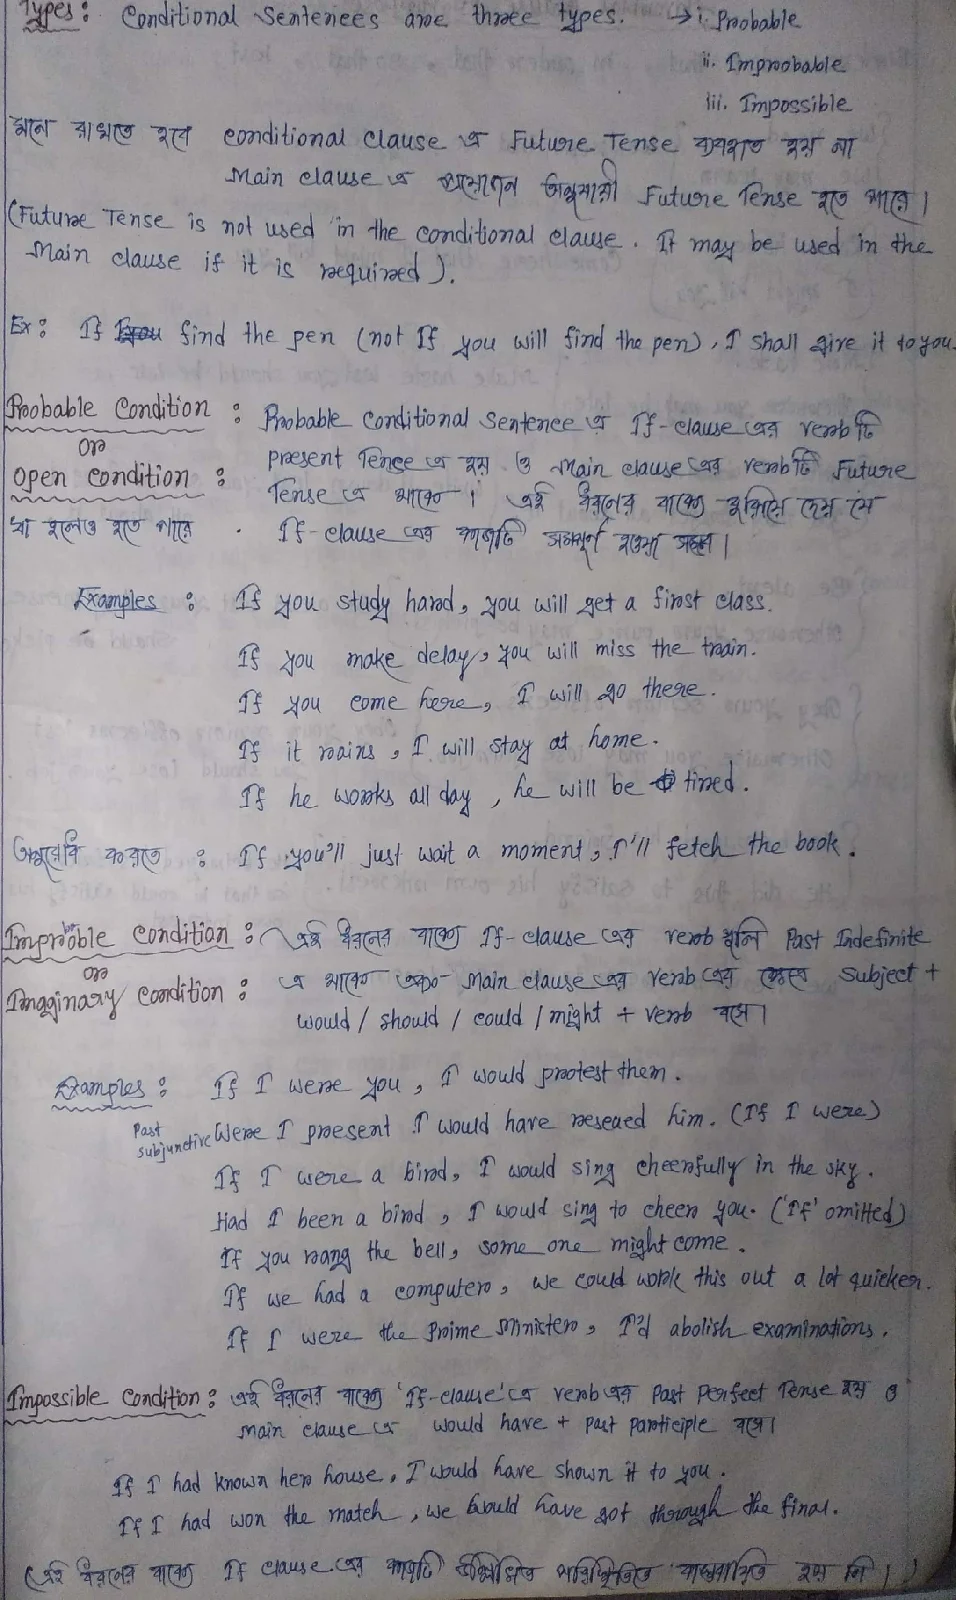 Types : Conditional Sentences are three types. → i. Probable
ii. Improbable
iii. Impossible
মনে রাখতে হবে conditional clause এ Future Tense ব্যবহৃত হয় না
Main clause এ প্রয়োজন অনুযায়ী Future Tense হতে পারে।
(Future Tense is not used in the conditional clause. It may be used in the
Main clause if it is required).
Ex : If you find the pen (not If you will find the pen), I shall give it to you.
Probable Condition : Probable Conditional Sentence এ If-clause এর verb টি
or
Open Condition : present Tence এ হয় ও Main clause এর verb টি Future
Tense এ থাকে। এই ধরনের বাক্যে বুঝিয়ে দেয় যে
যা হলেও হতে পারে . If-clause এর কাজটি সম্পূর্ণ হওয়া সম্ভব।
Examples : If you study hard, you will get a first class.
If you make delay, you will miss the train.
If you come here, I will go there.
If it rains, I will stay at home.
If he works all day, he will be tired.
অনুরোধ করতে : If you'll just wait a moment, I'll fetch the book.
Improbable Condition : এই ধরনের বাক্যে If-clause এর verb Past Indefinite
or
Imagginary Condition : এ থাকে এবং Main clause এর verb এর ক্ষেত্রে Subject +
would / should / could / might + verb বসে।
Examples : If I were you, I would protest them.
Past subjunctive Were I present I would have rescued him. (If I were)
If I were a bird, I would sing cheerfully in the sky.
Had I been a bird, I would sing to cheer you. ('If' omitted)
If you rang the bell, some one might come.
If we had a computer, we could work this out a lot quicker.
If I were the Prime Minister, I'd abolish examinations.
Impossible Condition : এই ধরনের বাক্যে 'If-clause' এ verb এর Past Perfect Tense হয় ও
main clause এ would have + past participle বসে।
If I had known her house, I would have shown it to you.
If I had won the match, we would have got through the final.
(এই ধরনের বাক্যে If clause এর কাজটি উল্লিখিত পরিস্থিতিতে বাস্তবায়িত হয় নি।)